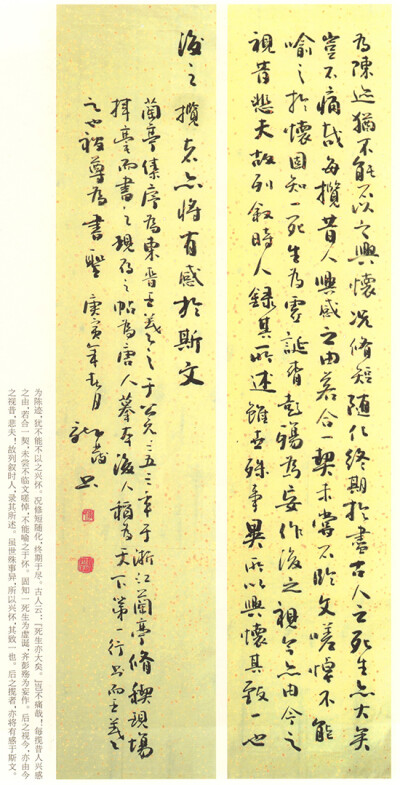 為陳迹猶不能不以之興懷況脩短隨化終期於盡古人云死生亦大矣
豈不痛哉每攬昔人興感之由若合一契未嘗不臨文嗟悼不能
喻之於懷固知一死生為虛誕齊彭殤為妄作後之視今亦由今之
視昔悲夫故列敘時人錄其所述雖世殊事異所以興懷其致一也
後之攬者亦將有感於斯文
蘭亭集序為東晉王羲之于公元三五三年于浙江蘭亭脩稧現場
揮毫而書之現存之帖為唐人摹本後人稱為天下第一行書而王羲
之也被尊為書聖 庚寅年春月 書
为陈迹，犹不能不以之兴怀。况修短随化，终期于尽。古人云：“死生亦大矣。”岂不痛哉！每揽昔人兴感
之由，若合一契，未尝不临文嗟悼，不能喻之于怀。固知一死生为虚诞，齐彭殇为妄作。后之视今，亦由今
之视昔，悲夫！故列叙时人，录其所述。虽世殊事异，所以兴怀，其致一也。后之揽者，亦将有感于斯文。